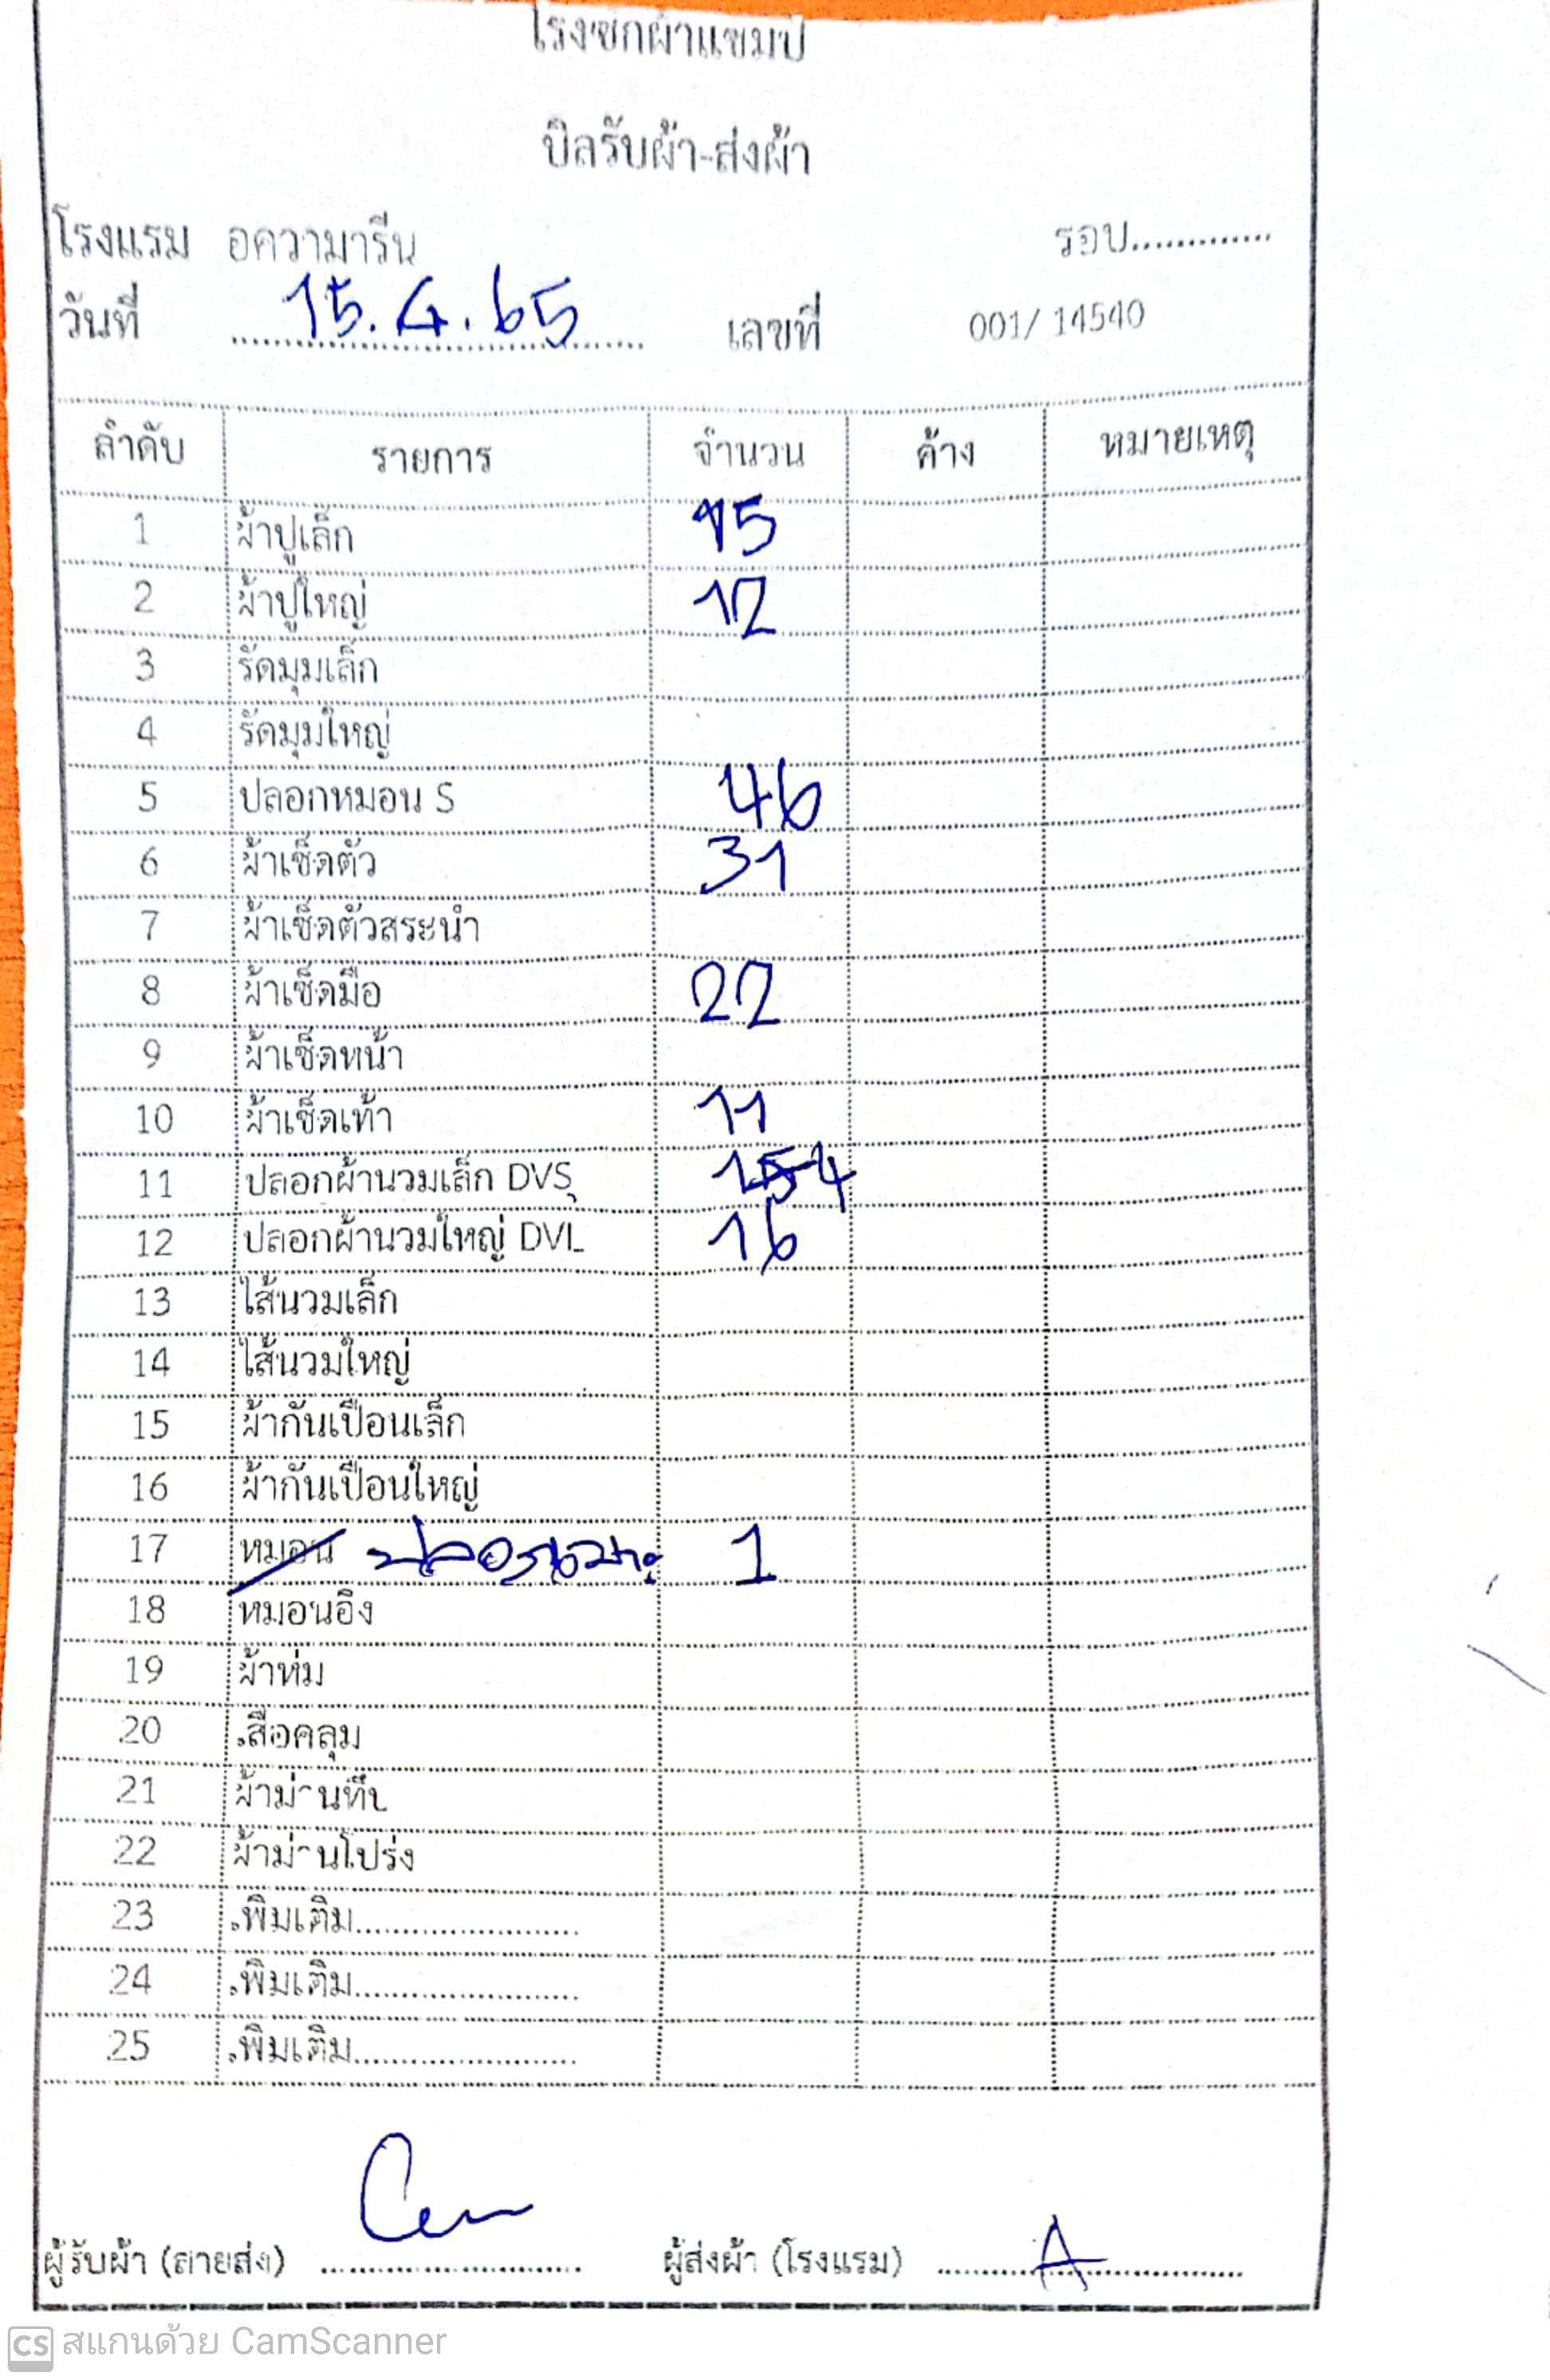 โรงซักผ้าแชมป์
บิลรับผ้า-ส่งผ้า
โรงแรม อความารีน รอบ.............
วันที่ 15.4.65 เลขที่ 001/14540
ลำดับ รายการ จำนวน ค้าง หมายเหตุ
1 ผ้าปูเล็ก 15
2 ผ้าปูใหญ่ 12
3 รัดมุมเล็ก
4 รัดมุมใหญ่
5 ปลอกหมอน S 46
6 ผ้าเช็ดตัว 31
7 ผ้าเช็ดตัวสระน้ำ
8 ผ้าเช็ดมือ 22
9 ผ้าเช็ดหน้า
10 ผ้าเช็ดเท้า 11
11 ปลอกผ้านวมเล็ก DVS 14
12 ปลอกผ้านวมใหญ่ DVL 16
13 ไส้นวมเล็ก
14 ไส้นวมใหญ่
15 ผ้ากันเปื้อนเล็ก
16 ผ้ากันเปื้อนใหญ่
17 หมอน 1
18 หมอนอิง
19 ผ้าห่ม
20 เสื้อคลุม
21 ผ้าม่านทึบ
22 ผ้าม่านโปร่ง
23 เพิ่มเติม.......................
24 เพิ่มเติม.......................
25 เพิ่มเติม.......................
ผู้รับผ้า (สายส่ง) .......................... ผู้ส่งผ้า (โรงแรม) ..........A..........
CS สแกนด้วย CamScanner